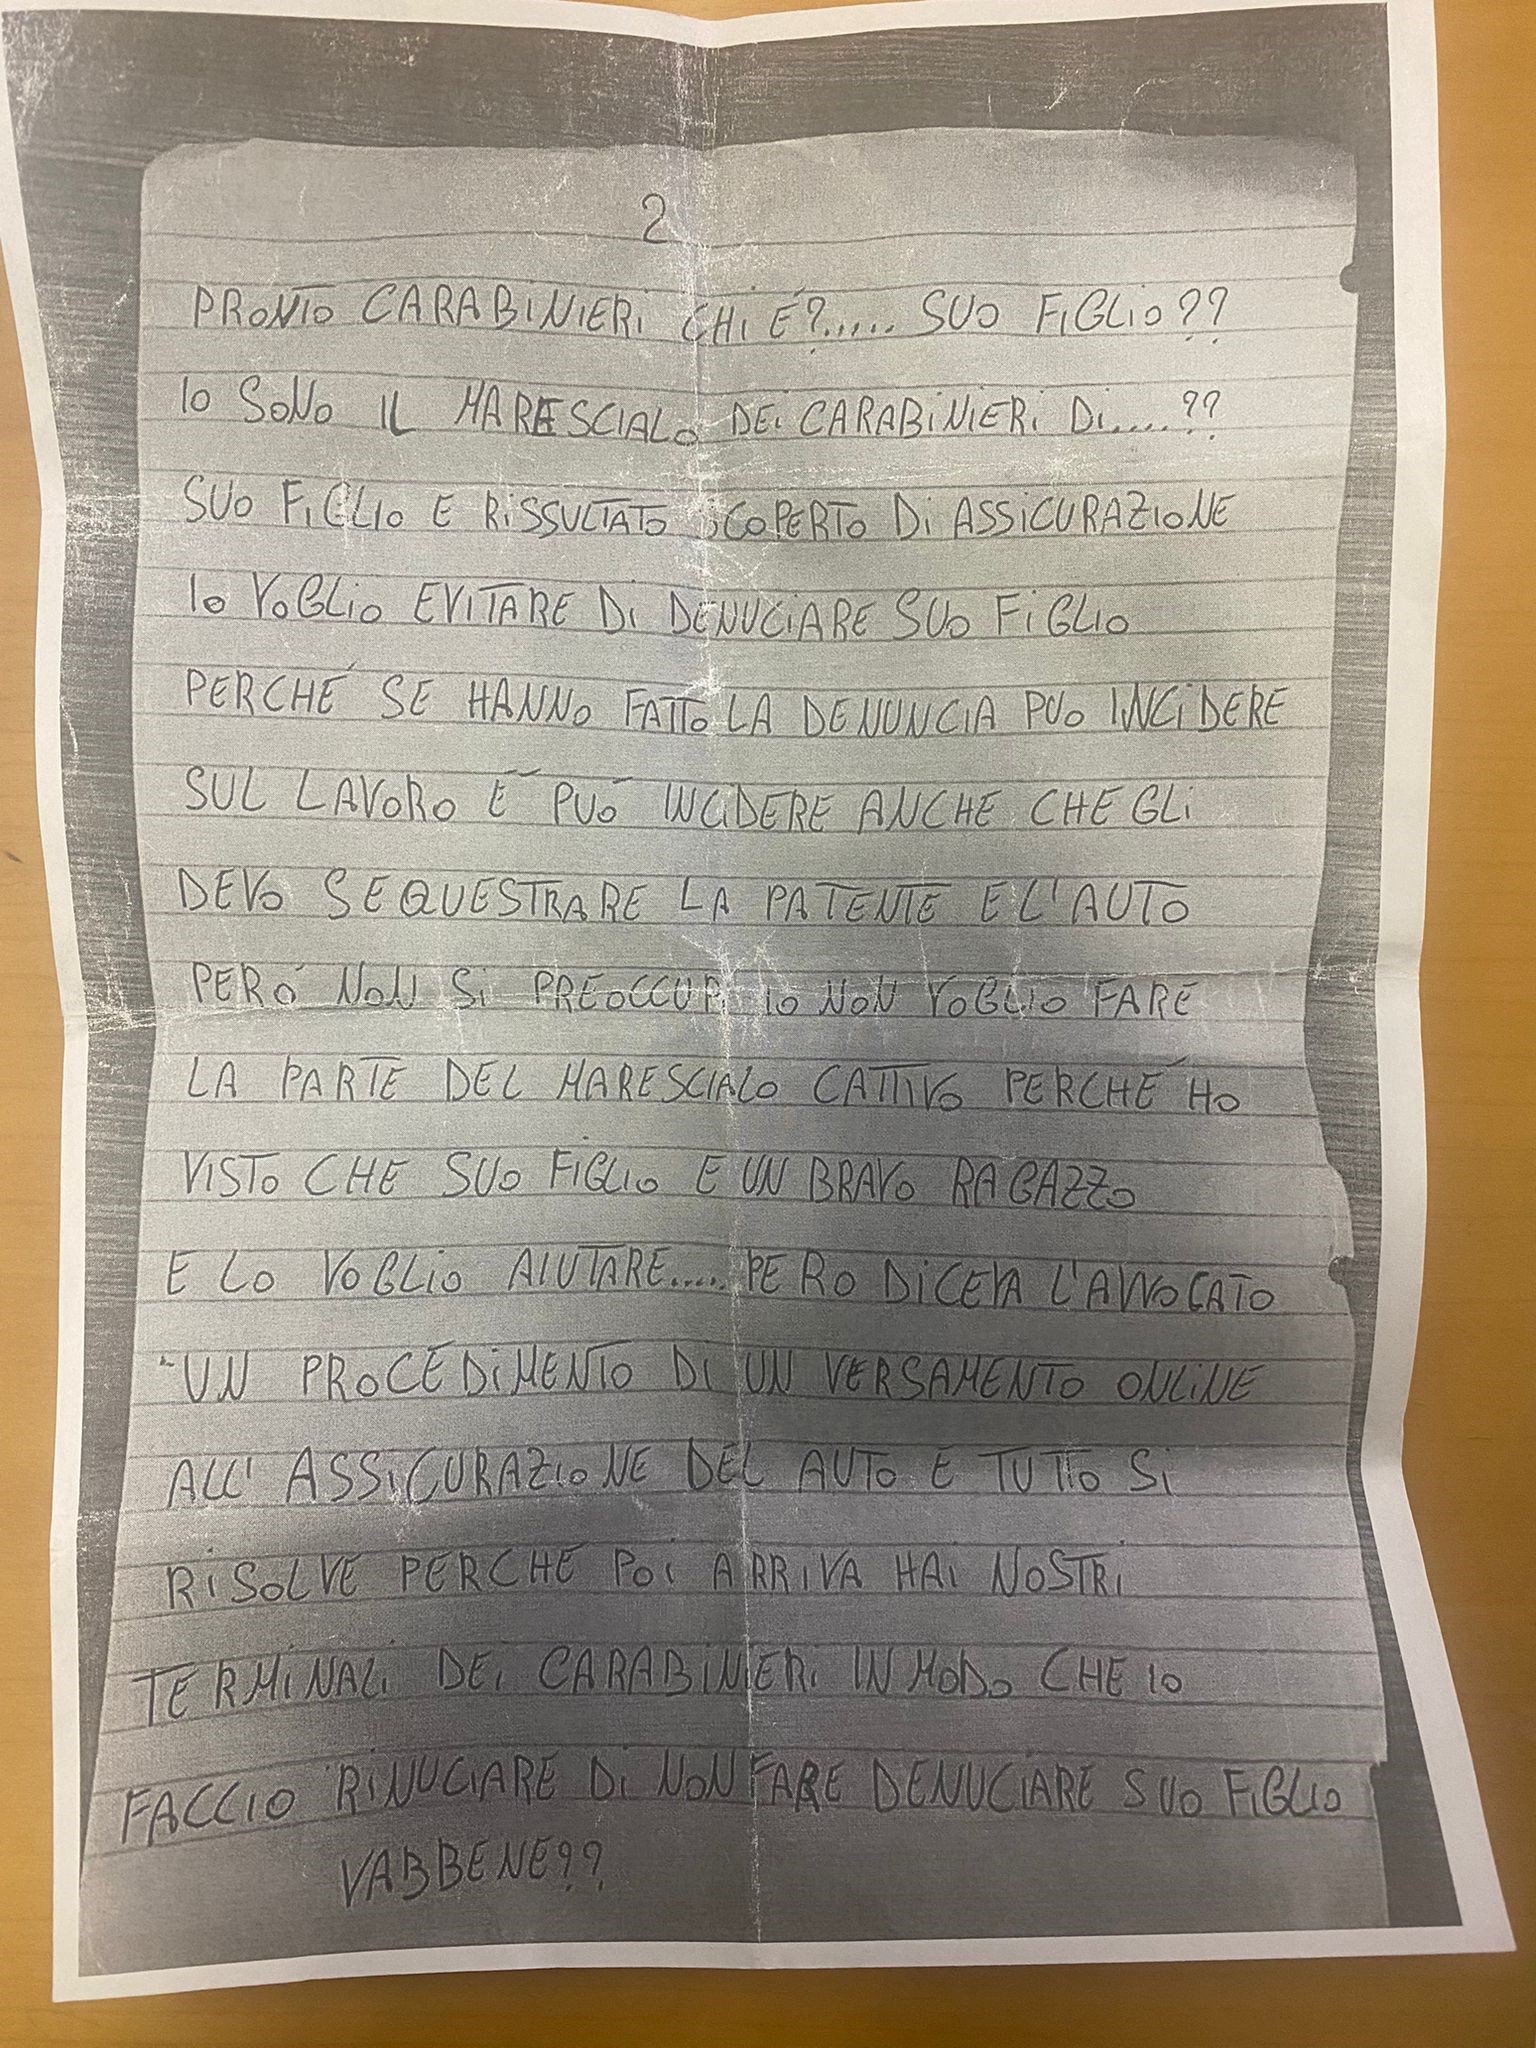 2
PRONTO CARABINIERI CHI É?..... SUO FIGLIO??
IO SONO IL MARESCIALO DEI CARABINIERI DI.....??
SUO FIGLIO E RISSULTATO SCOPERTO DI ASSICURAZIONE
IO VOGLIO EVITARE DI DENUCIARE SUO FIGLIO
PERCHÉ SE HANNO FATTO LA DENUNCIA PUO INCIDERE
SUL LAVORO É PUÓ INCIDERE ANCHE CHE GLI
DEVO SEQUESTRARE LA PATENTE E L'AUTO
PERÓ NON SI PREOCCUPI IO NON VOGLIO FARE
LA PARTE DEL MARESCIALO CATTIVO PERCHÉ HO
VISTO CHE SUO FIGLIO E UN BRAVO RAGAZZO
E LO VOGLIO AIUTARE..... PERO DICEVA L'AVVOCATO
UN PROCEDIMENTO DI UN VERSAMENTO ONLINE
ALL' ASSICURAZIONE DEL AUTO E TUTTO SI
RISOLVE PERCHE POI ARRIVA HAI NOSTRI
TERMINALI DEI CARABINIERI IN MODO CHE IO
FACCIO RINUCIARE DI NON FARE DENUCIARE SUO FIGLIO
VABBENE??